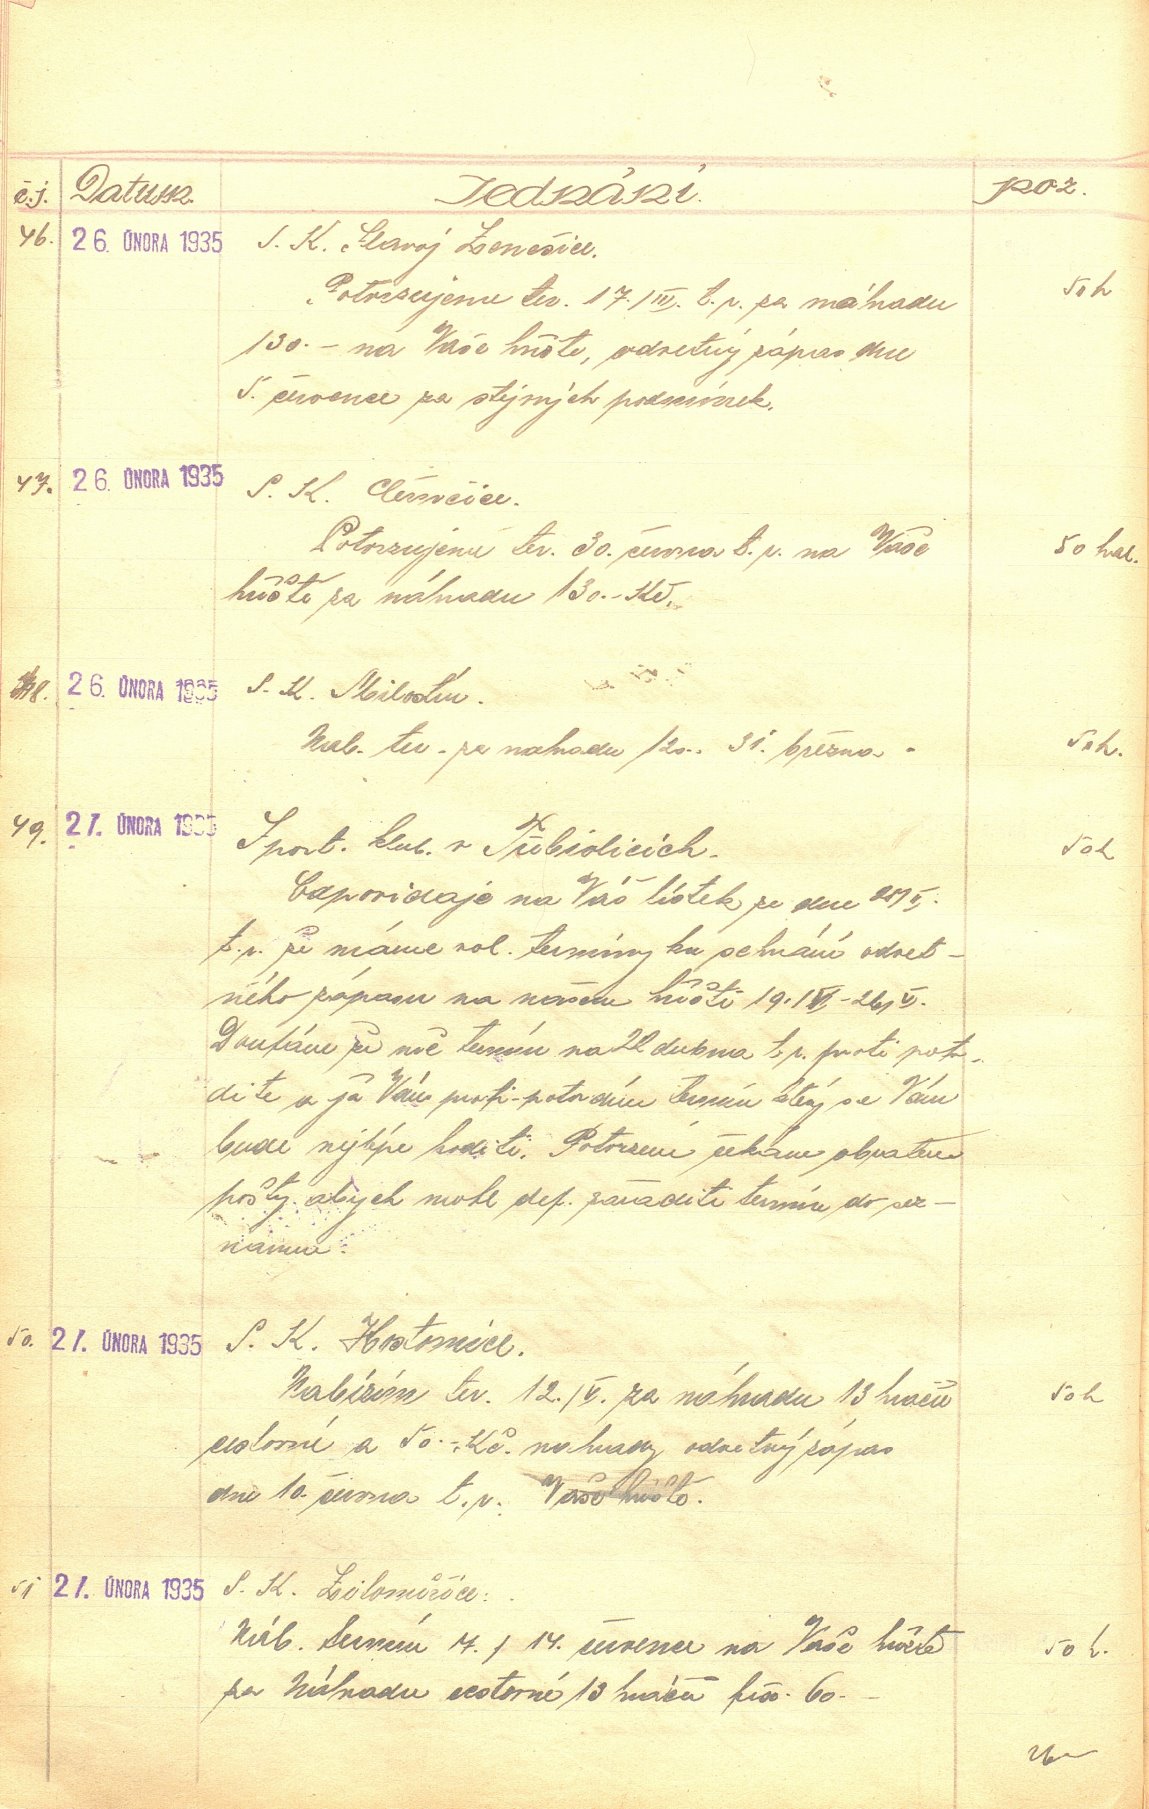 č.j. Datum. Jednání. poz.
46. 26. ÚNORA 1935 S. K. Slavoj Ženešice.
Potvrzujeme ter. 17./III. t. r. za náhradu 50 h
130.- na Vaše hřiště, odvetný zápas dne
5. července za stejných podmínek.
47. 26. ÚNORA 1935 S. K. Černčice.
Potvrzujeme ter. 30. června t. r. na Vaše 50 hal.
hřiště za náhradu 130.- Kč.
48. 26. ÚNORA 1935 S. K. Milostín.
Nab. ter. za nahradu 120.. 31. března. 50 h.
49. 27. ÚNORA 1935 Sport. klub. v Třebívlicích. 50 h
Odpovídaje na Váš lístek ze dne
t. r. že máme vol. termíny ku sehrání odvet-
ného zápasu na našem hřišti 19./V. - 26/V.
Doufáme že náš termín na 22 dubna t. r. proti potvr-
dite a já Vám proti-potvrdím termín který se Vám
bude nejlépe hoditi. Potvrzení čekám obratem
pošty abych mohl def. zařaditi termín do sez-
namu.
50. 27. ÚNORA 1935 S. K. Hostomice.
Nabízím ter. 12./V. za náhradu 13 hráčů 50 h
cestovné a 50.- Kč. nahrady odvetný zápas
dne 10. června t. r. Vaše hřiště.
51 27. ÚNORA 1935 S. K.
Náb. termín 7. / 14. července na Vaše hřiště 50 h.
za Náhradu cestovné 13 hráčů fix. 60.-